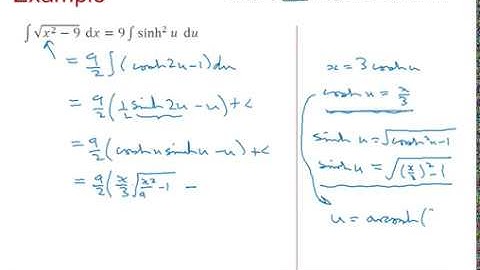 Example
∫ √(x² − 9) dx = 9 ∫ sinh² u du
= 9/2 ∫ (cosh2u − 1) du
= 9/2 (1/2 sinh 2u − u) + c
= 9/2 (cosh u sinh u − u) + c
= 9/2 (x/3 √(x²/9 − 1) −
x = 3 cosh u
cosh u = x/3
sinh u = √(cosh² u − 1)
sinh u = √((x/3)² − 1)
u = arcosh(